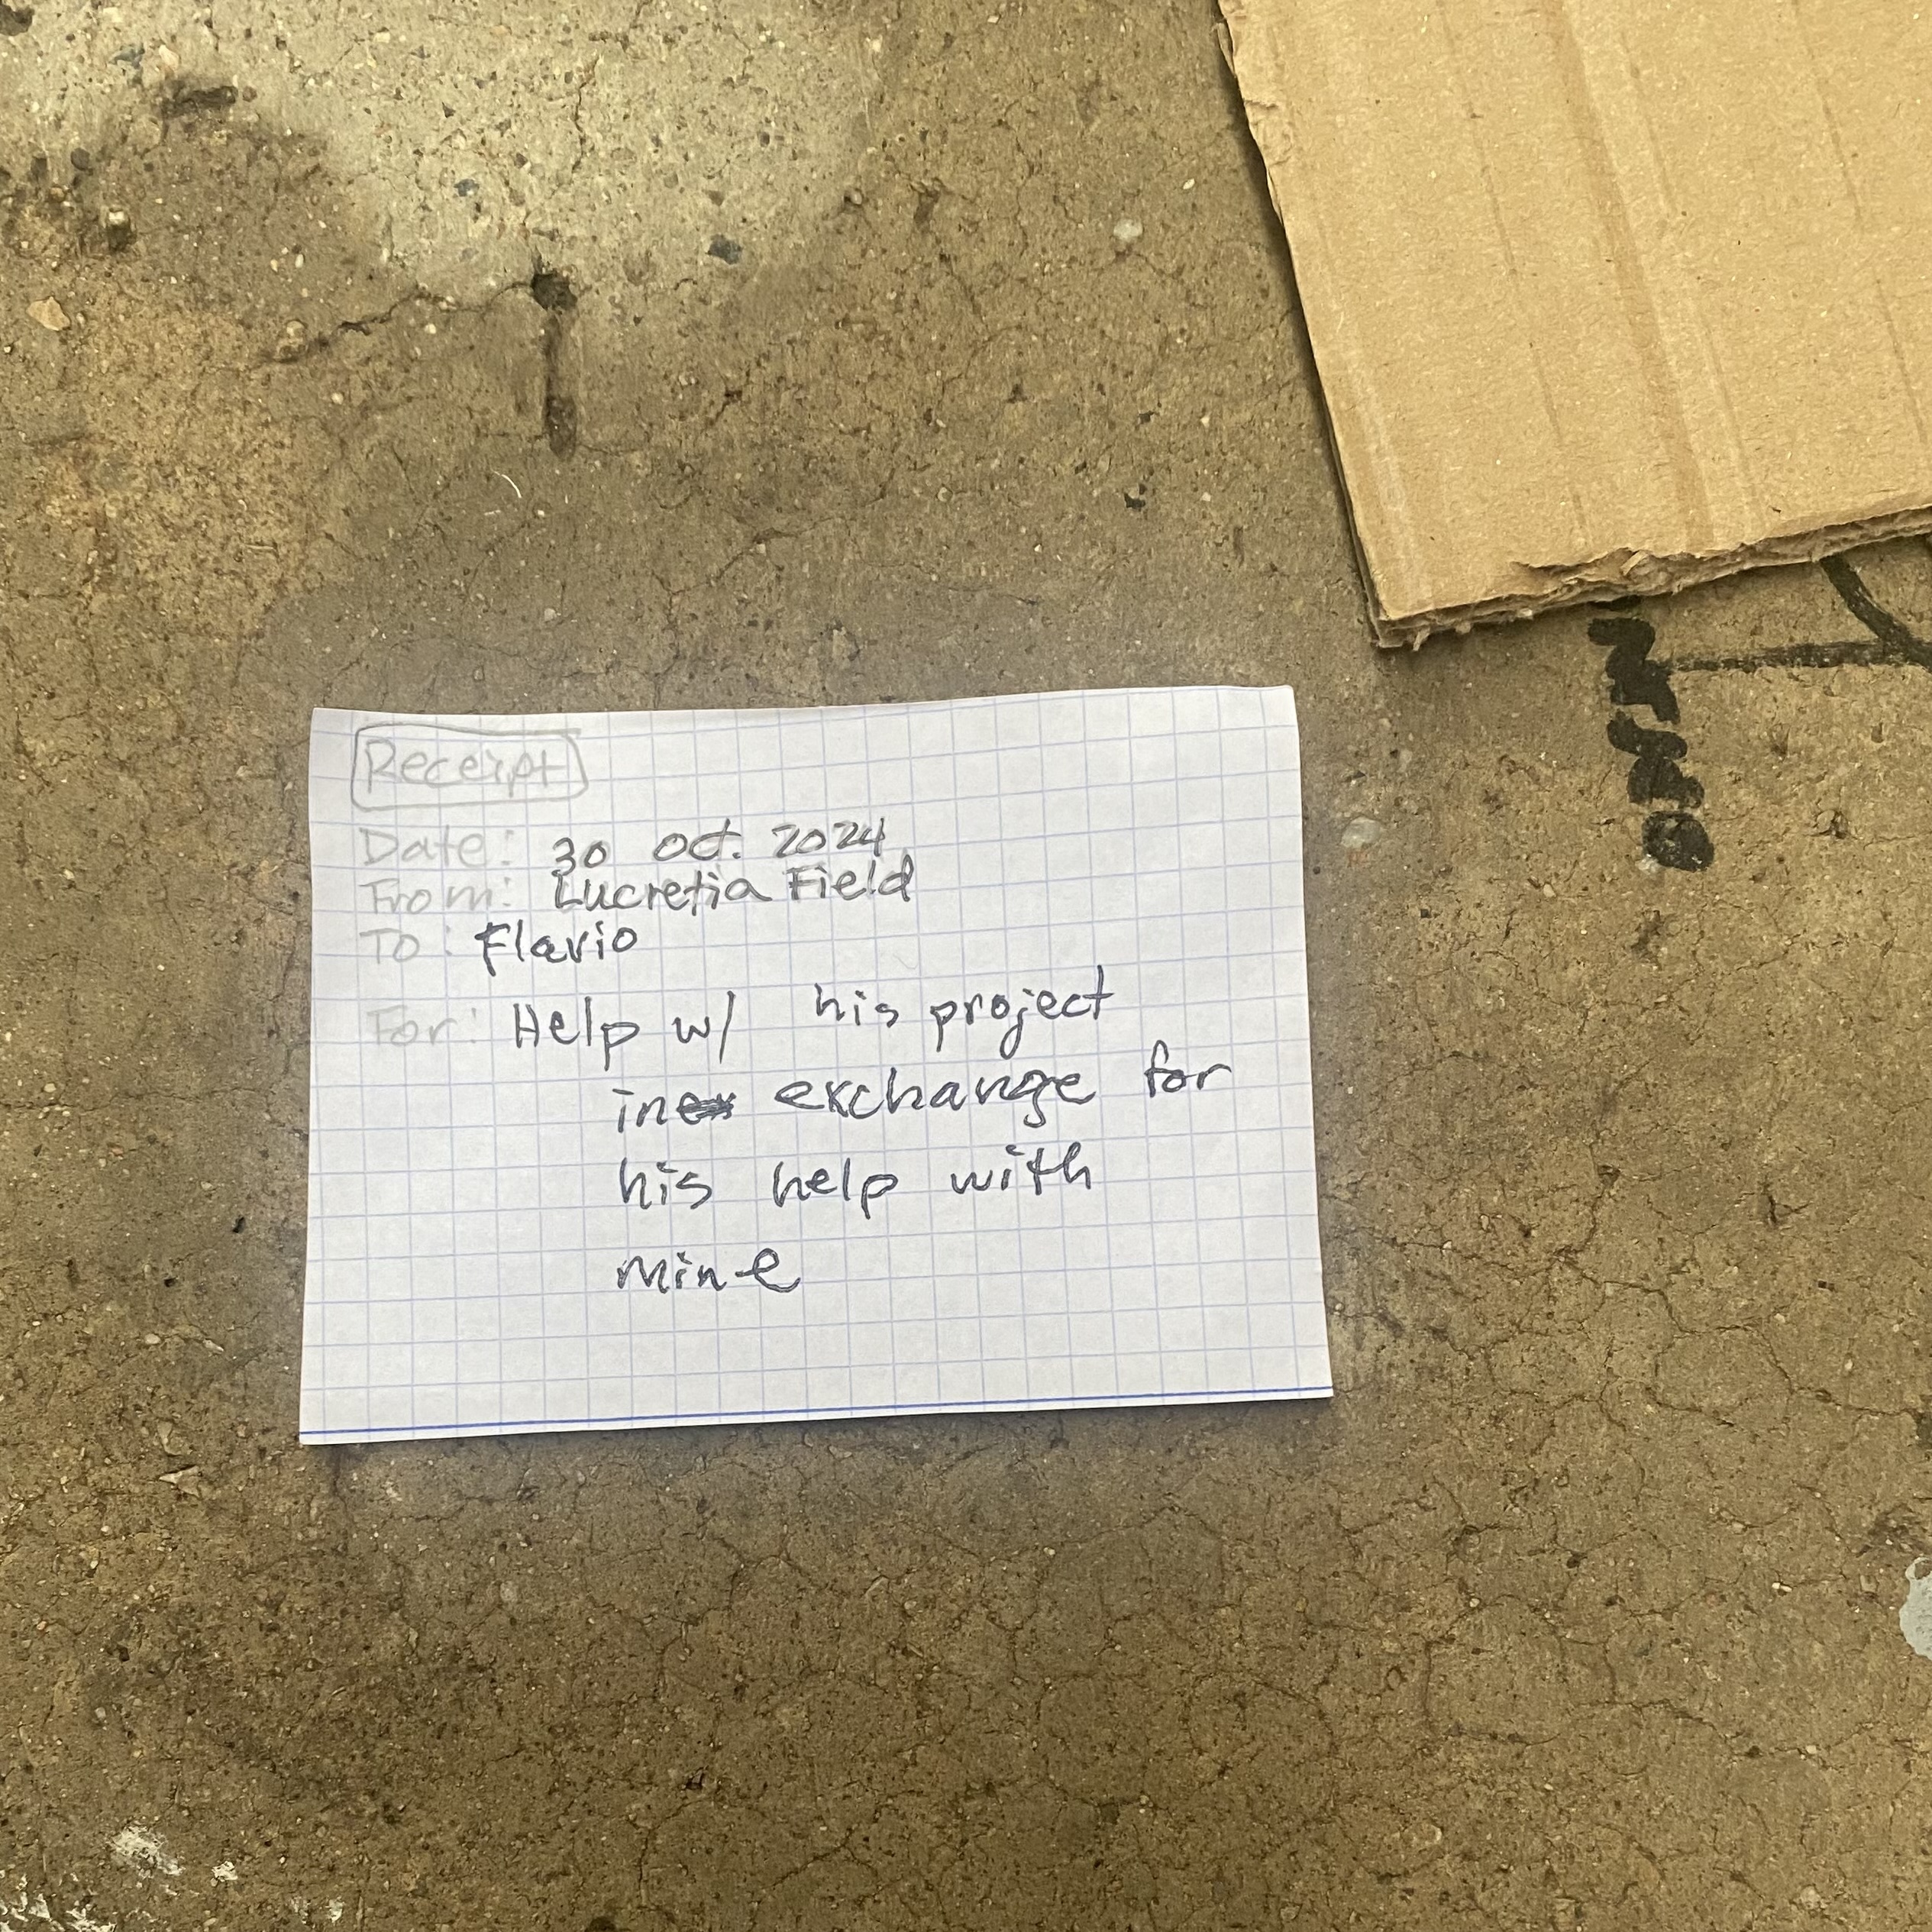 Receipt
Date: 30 Oct. 2024
From: Lucretia Field
To: Flavio
For: Help w/ his project
in exchange for
his help with
mine